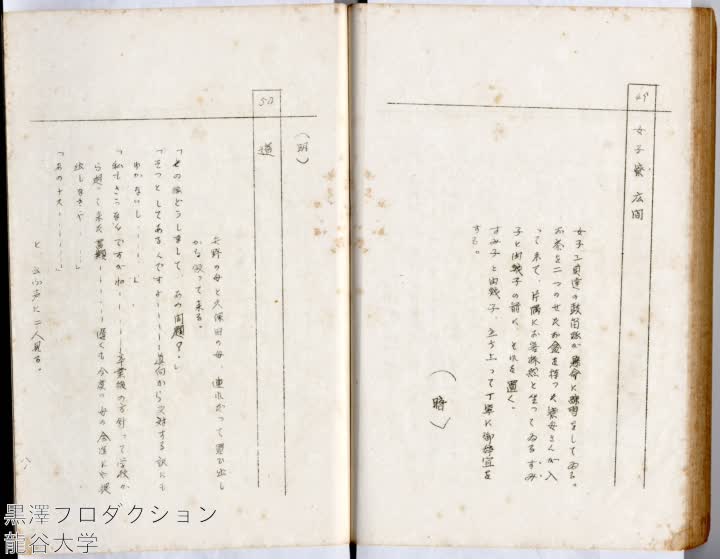 49
女子寮 広間
女子工員達の鼓笛隊が懸命に練習をしてゐる。
お茶を二つのせたお盆を持った寮母さんが入
って来て、片隅にお客様然と坐ってゐるすみ
子と由紀子の前に、それを置く。
すみ子と由紀子、立ち上って丁寧に御辞宜を
する。
(暗)
(明)
50
道
矢野の母と久保田の母、連れだって買ひ出し
から戻って来る。
「その後どうしまして、あの問題?」
「そっとしてあるんですよ……真向から反対する訳にも
ゆかないし……」
「私もさうなんですがね……卒業後の方針って学校か
ら廻って来た書類……遅くも今度の母の会迄には提
出しなきや……」
「あのナス……」
と 二人見る。
黒澤プロダクション
龍谷大学